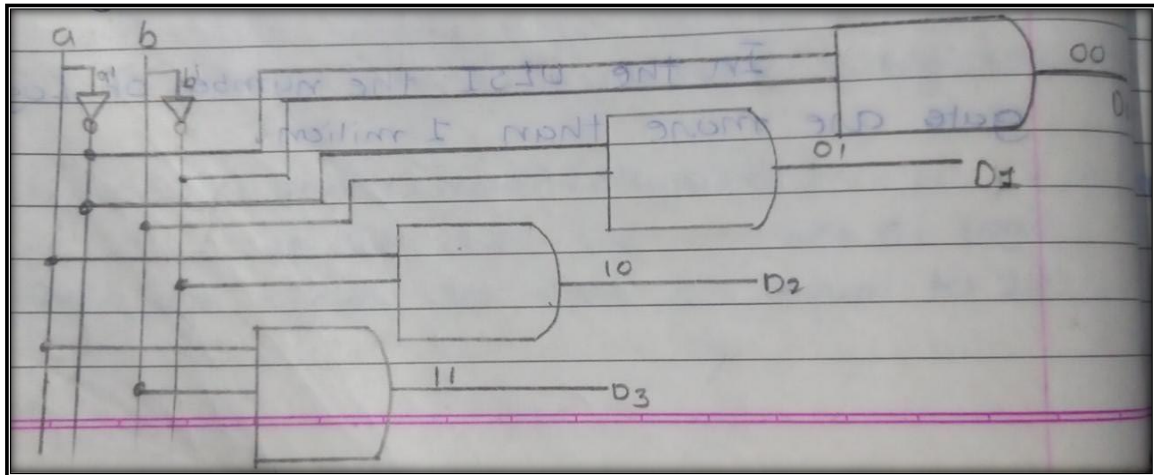 a b
a' b'
00
01
D1
10
D2
11
D3